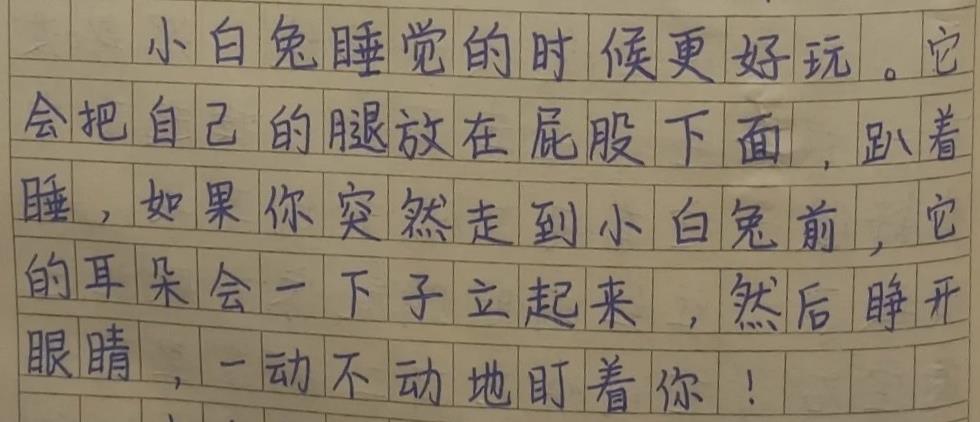 小白兔睡觉的时候更好玩。它
会把自己的腿放在屁股下面，趴着
睡，如果你突然走到小白兔前，它
的耳朵会一下子立起来，然后睁开
眼睛，一动不动地盯着你！